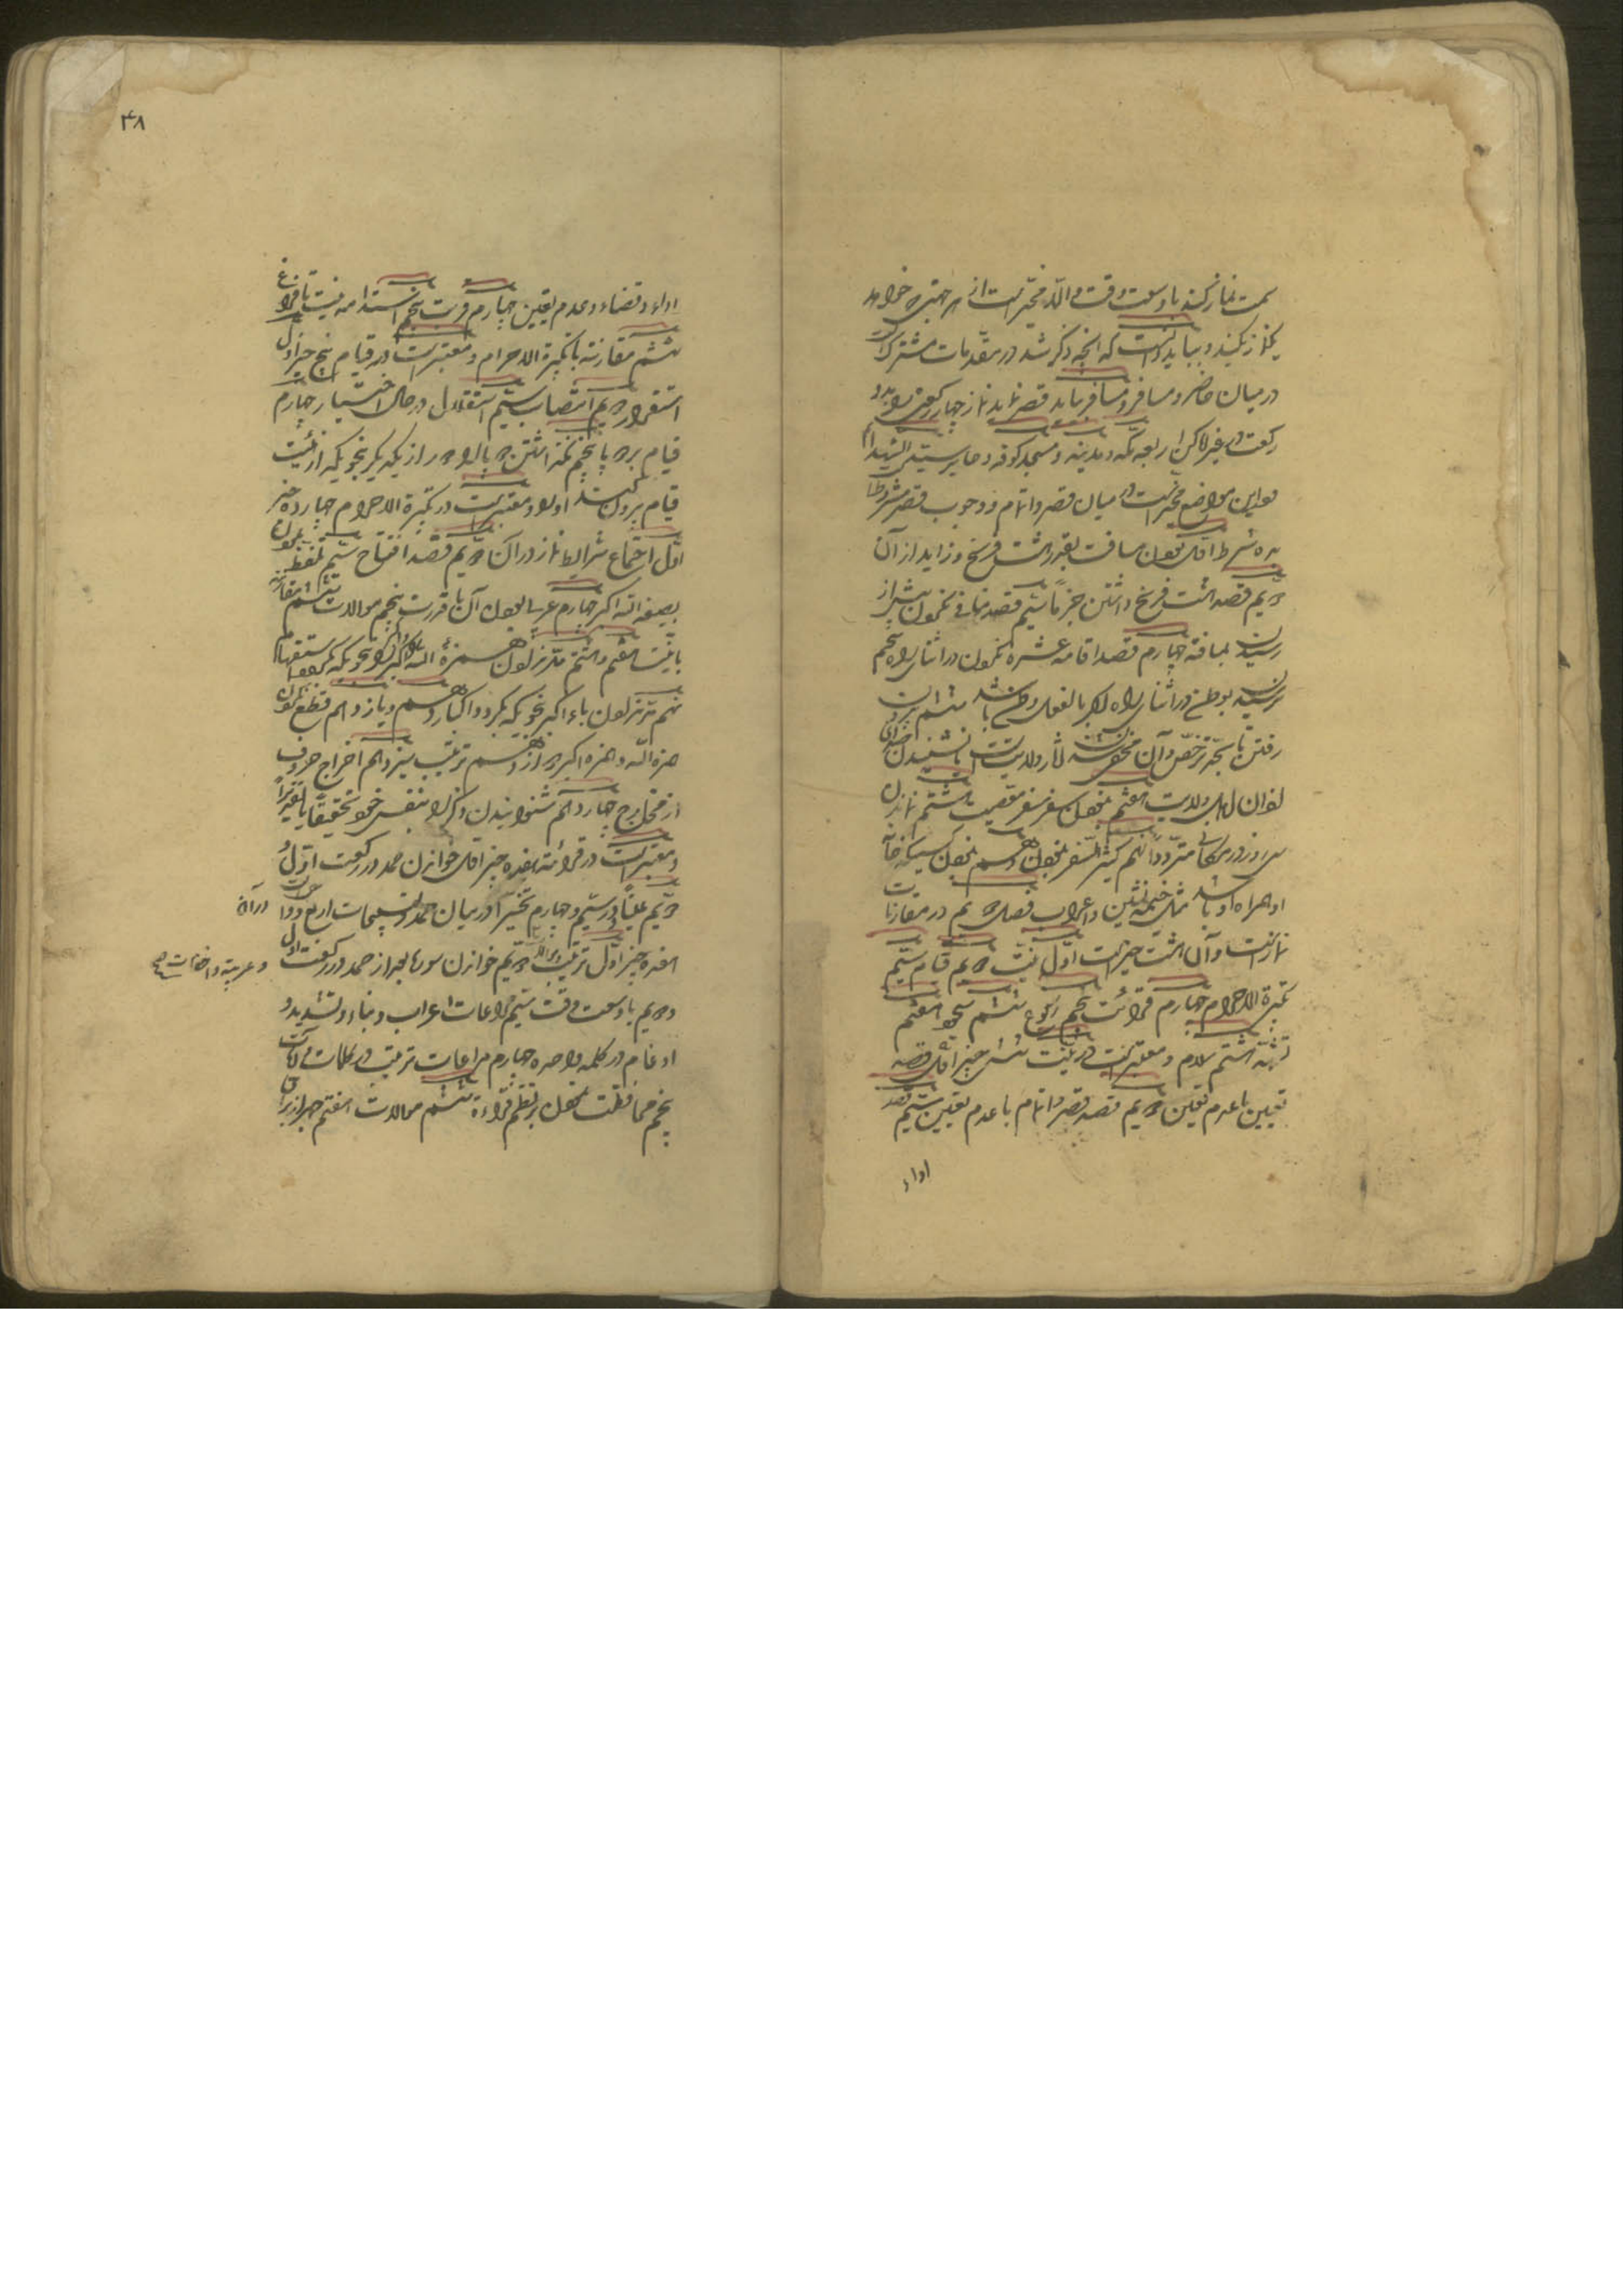 سمت نماز کند با وسعت وقت والا مخیر است از هر جهتی که خواهد
نماز بکند و بباید دانست که آنچه ذکر شد در مقدمات مشترک است
در میان حاضر و مسافر و مسافر باید قصر نماید نماز چهار رکعتی را بدو
رکعت در غیر اماکن اربعه مکه و مدینه و مسجد کوفه و حایر سید الشهدا
و این مواضع مخیر است در میان قصر و اتمام و وجوب قصر مشروط است
به ده شرط اول بودن مسافت بقدر هشت فرسخ و زاید از آن
دویم قصد هشت فرسخ داشتن جزماً سیم قصد منافی نکردن پیش از
رسیدن بمسافة چهارم قصد اقامه عشره نکردن در اثنای راه پنجم
نرسیدن بوطن در اثنای راه که بالفعل وطن باشد ششم بیرون
رفتن تا بحد ترخص و آن مخفی شدن آثار ولایت است یا نشنیدن صدای
اذان اهل ولایت هفتم نبودن سفر سفر معصیت هشتم نماندن
سی روز در مکانی متردداً نهم کثیر السفر نبودن دهم نبودن کسیکه خانه
او همراه او باشد مثل خیمه نشین و اعراب فصل دویم در مقارنات
نماز است و آن هشت چیز است اول نیت دویم قیام سیم
تکبیرة الاحرام چهارم قرائت پنجم رکوع ششم سجود هفتم
تشهد هشتم سلام و معتبر است در نیت شش چیز اول قصد
تعیین با عدم تعین دویم قصد قصر و اتمام با عدم تعیین سیم قصد
اداء
۴۸
اداء و قضاء و عدم تعین چهارم قربت پنجم استدامه نیت تا فراغ
ششم مقارنته با تکبیرة الاحرام و معتبر است در قیام پنج چیز اول
استقرار دویم انتصاب سیم استقلال در حال اختیار چهارم
قیام بر دو پا پنجم نگذاشتن دو پا را دور از یکدیگر بنحوی که از هیئت
قیام بیرون کند او را و معتبر است در تکبیرة الاحرام چهارده چیز
اول اجتماع شرایط نماز در آن دویم قصد افتتاح سیم تلفظ نمودن
بصیغه الله اکبر چهارم عربی بودن آن با قدرت پنجم موالات ششم مقارنه
با نیت هفتم و هشتم مد ندادن همزه الله و اکبر را بنحوی که بگردد استفهام
نهم مد ندادن باء اکبر بنحوی که بگردد اکبار دهم و یازدهم قطع نمودن
همزه الله و همزه اکبر دوازدهم ترتیب سیزدهم اخراج حروف
از مخارج چهاردهم شنوانیدن ذکر را بنفس خود تحقیقاً یا تقدیراً
و معتبر است در قرائت هفده چیز اول خواندن حمد در رکعت اول
دویم عیناً و در سیم و چهارم تخییراً در میان حمد و تسبیحات اربع و در آن
هفده چیز اول ترتیب دویم خواندن سوره بعد از حمد در رکعت اول
و دویم با وسعت وقت سیم مراعات اعراب و بناء و تشدید و
ادغام در کلمه واحده چهارم مراعات ترتیب در کلمات و آیات
پنجم محافظت نمودن بر نظم قراءة ششم موالات هفتم جهر از برای